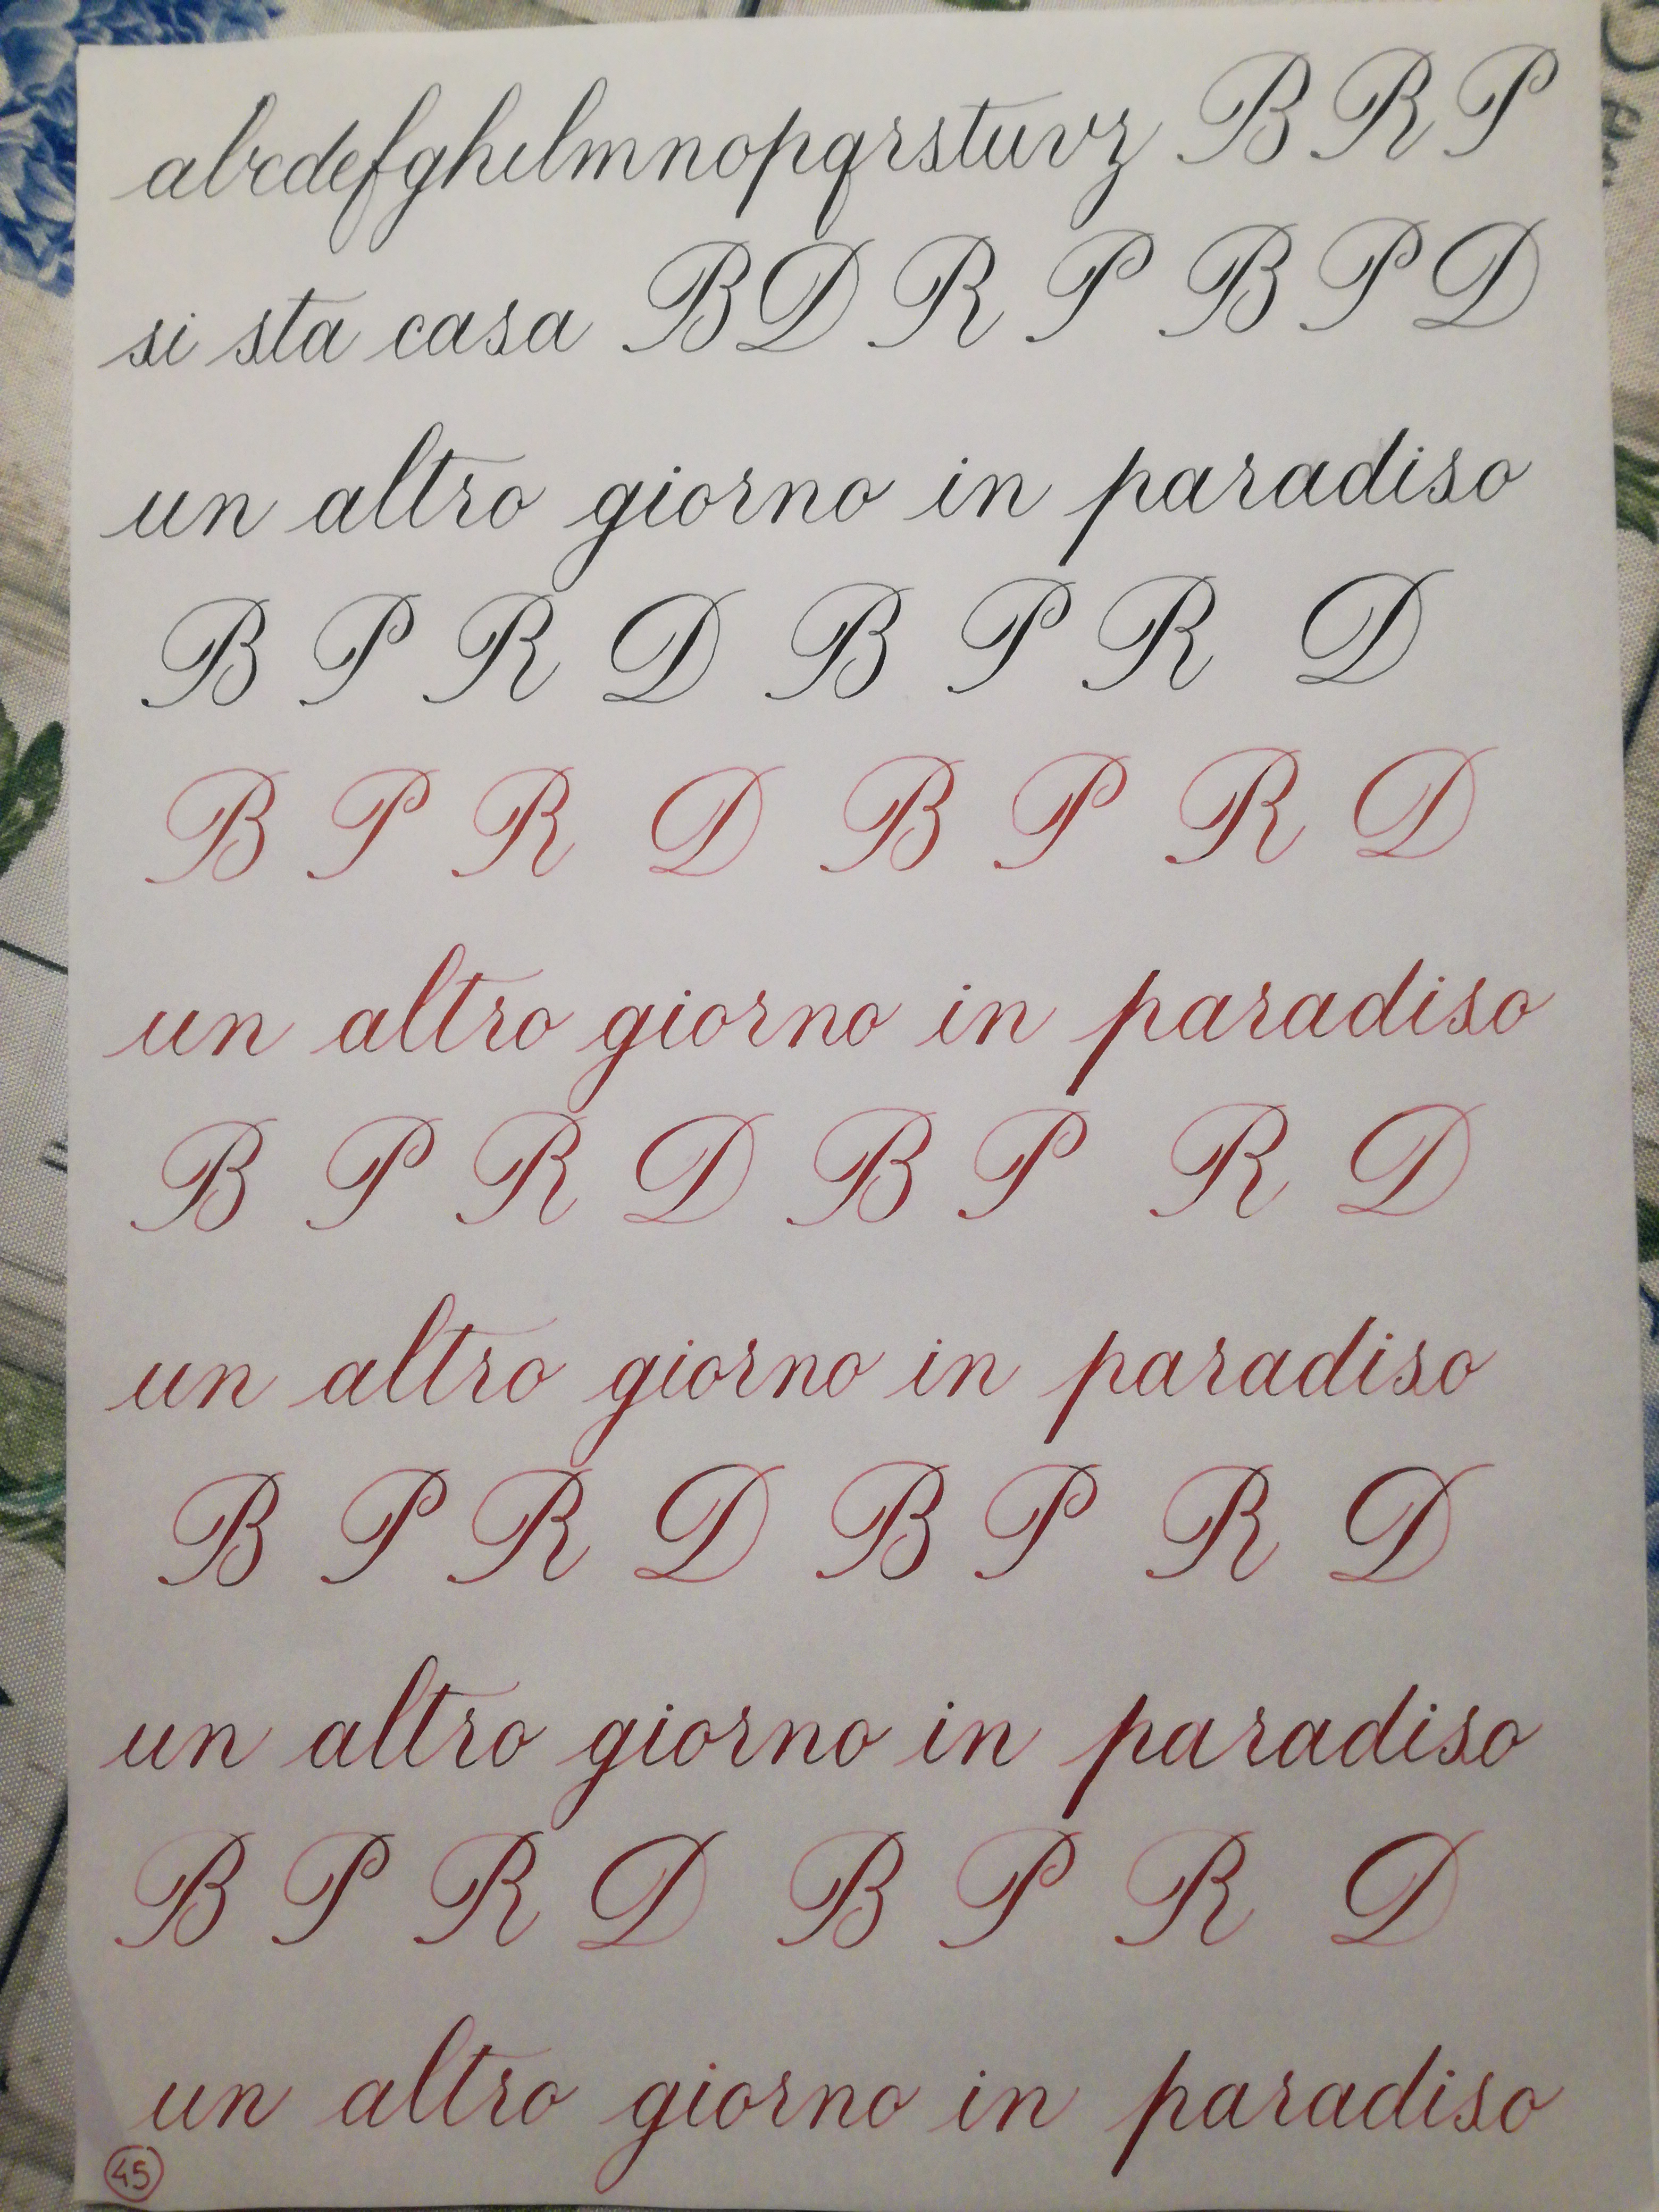 abcdefghilmnopqrstuvz B R P
si sta casa B D R P B P D
un altro giorno in paradiso
B P R D B P R D
B P R D B P R D
un altro giorno in paradiso
B P R D B P R D
un altro giorno in paradiso
B P R D B P R D
un altro giorno in paradiso
B P R D B P R D
un altro giorno in paradiso
45